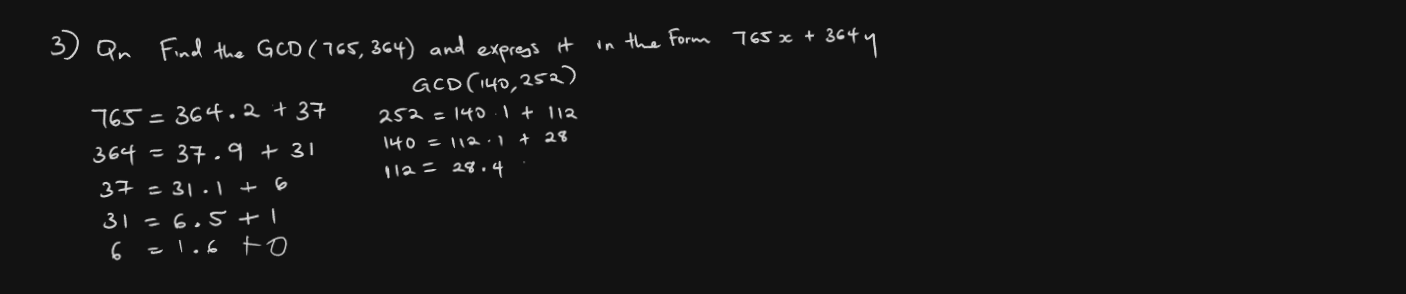 3) Qn Find the GCD (765, 364) and express it in the Form 765x + 364y
GCD (140, 252)
765 = 364.2 + 37
364 = 37.9 + 31
37 = 31.1 + 6
31 = 6.5 + 1
6 = 1.6 + 0
252 = 140.1 + 112
140 = 112.1 + 28
112 = 28.4